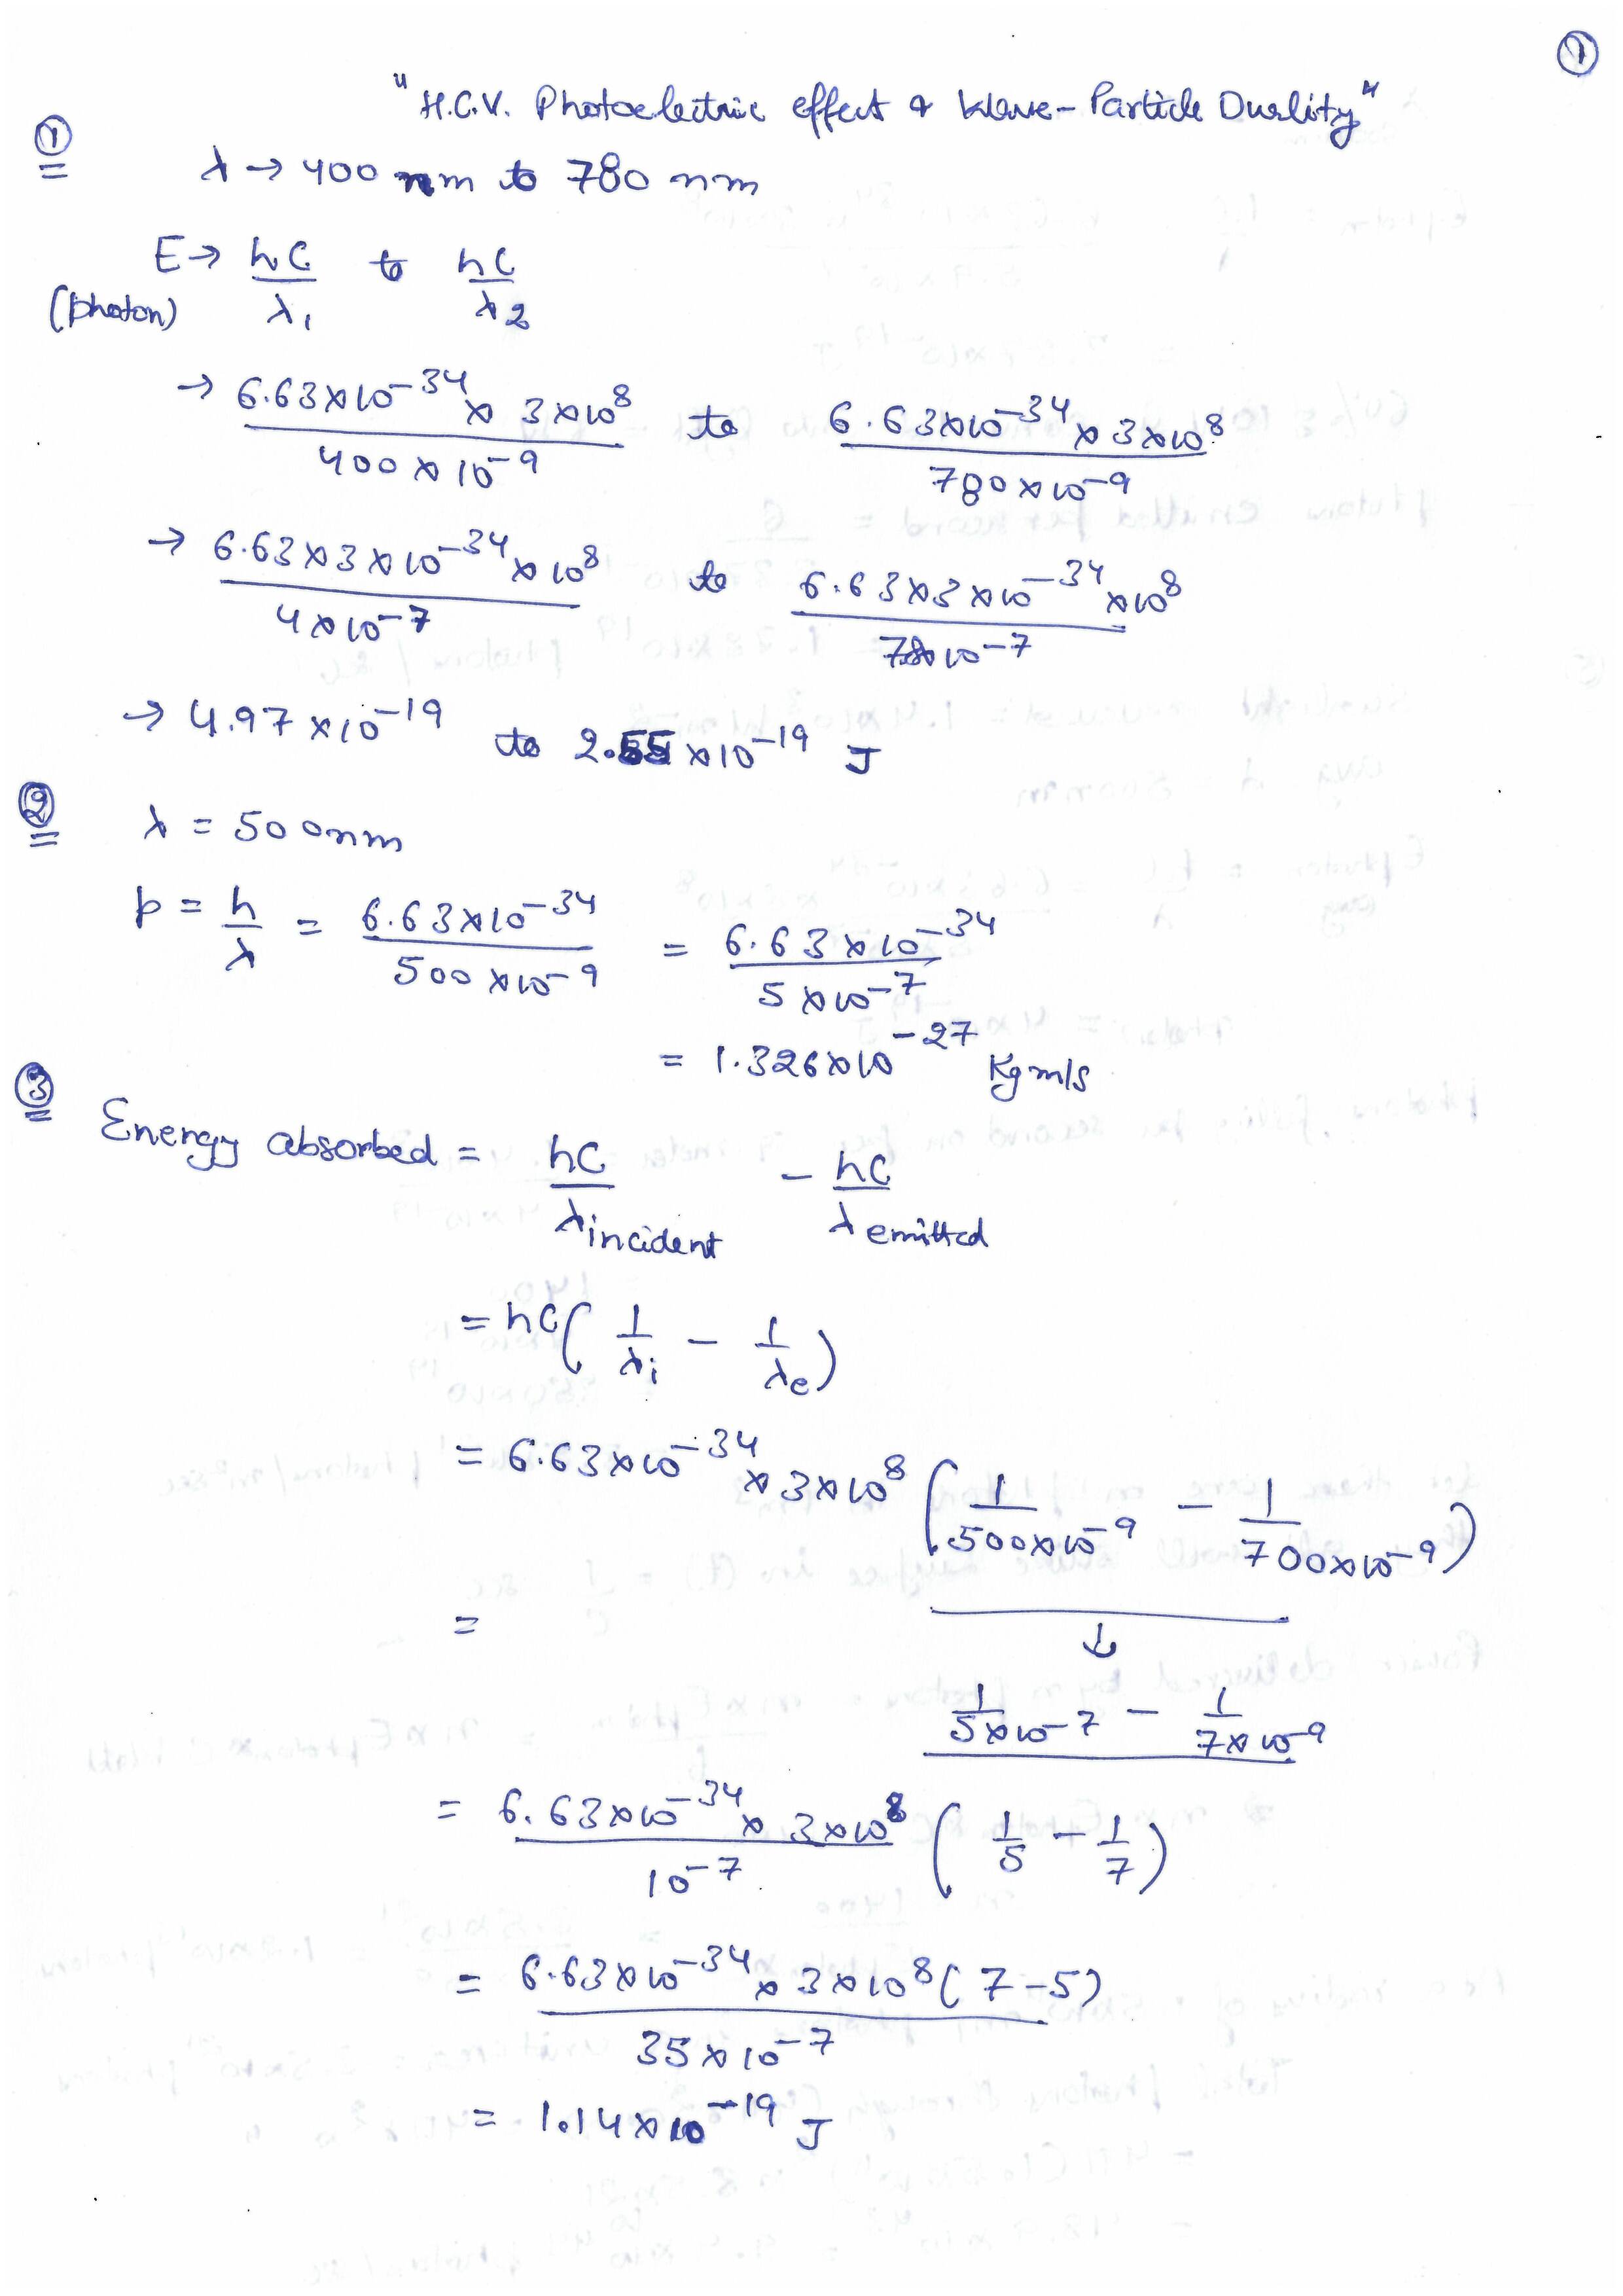 ①
"H.C.V. Photoelectric effect & Wave-Particle Duality"
① λ → 400 nm to 780 nm
E → hC/λ₁ to hC/λ₂
(photon)
→ 6.63×10⁻³⁴ × 3×10⁸ / 400×10⁻⁹ to 6.63×10⁻³⁴ × 3×10⁸ / 780×10⁻⁹
→ 6.63×3×10⁻³⁴×10⁸ / 4×10⁻⁷ to 6.63×3×10⁻³⁴×10⁸ / 7.8×10⁻⁷
→ 4.97×10⁻¹⁹ to 2.55×10⁻¹⁹ J
② λ = 500nm
p = h/λ = 6.63×10⁻³⁴ / 500×10⁻⁹ = 6.63×10⁻³⁴ / 5×10⁻⁷
= 1.326×10⁻²⁷ Kg m/s
③ Energy absorbed = hC/λincident - hC/λemitted
= hC( 1/λi - 1/λe )
= 6.63×10⁻³⁴ × 3×10⁸ ( 1/500×10⁻⁹ - 1/700×10⁻⁹ )
= ↓
1/5×10⁻⁷ - 1/7×10⁻⁹
= 6.63×10⁻³⁴ × 3×10⁸ / 10⁻⁷ ( 1/5 - 1/7 )
= 6.63×10⁻³⁴ × 3×10⁸ ( 7-5) / 35×10⁻⁷
= 1.14×10⁻¹⁹ J